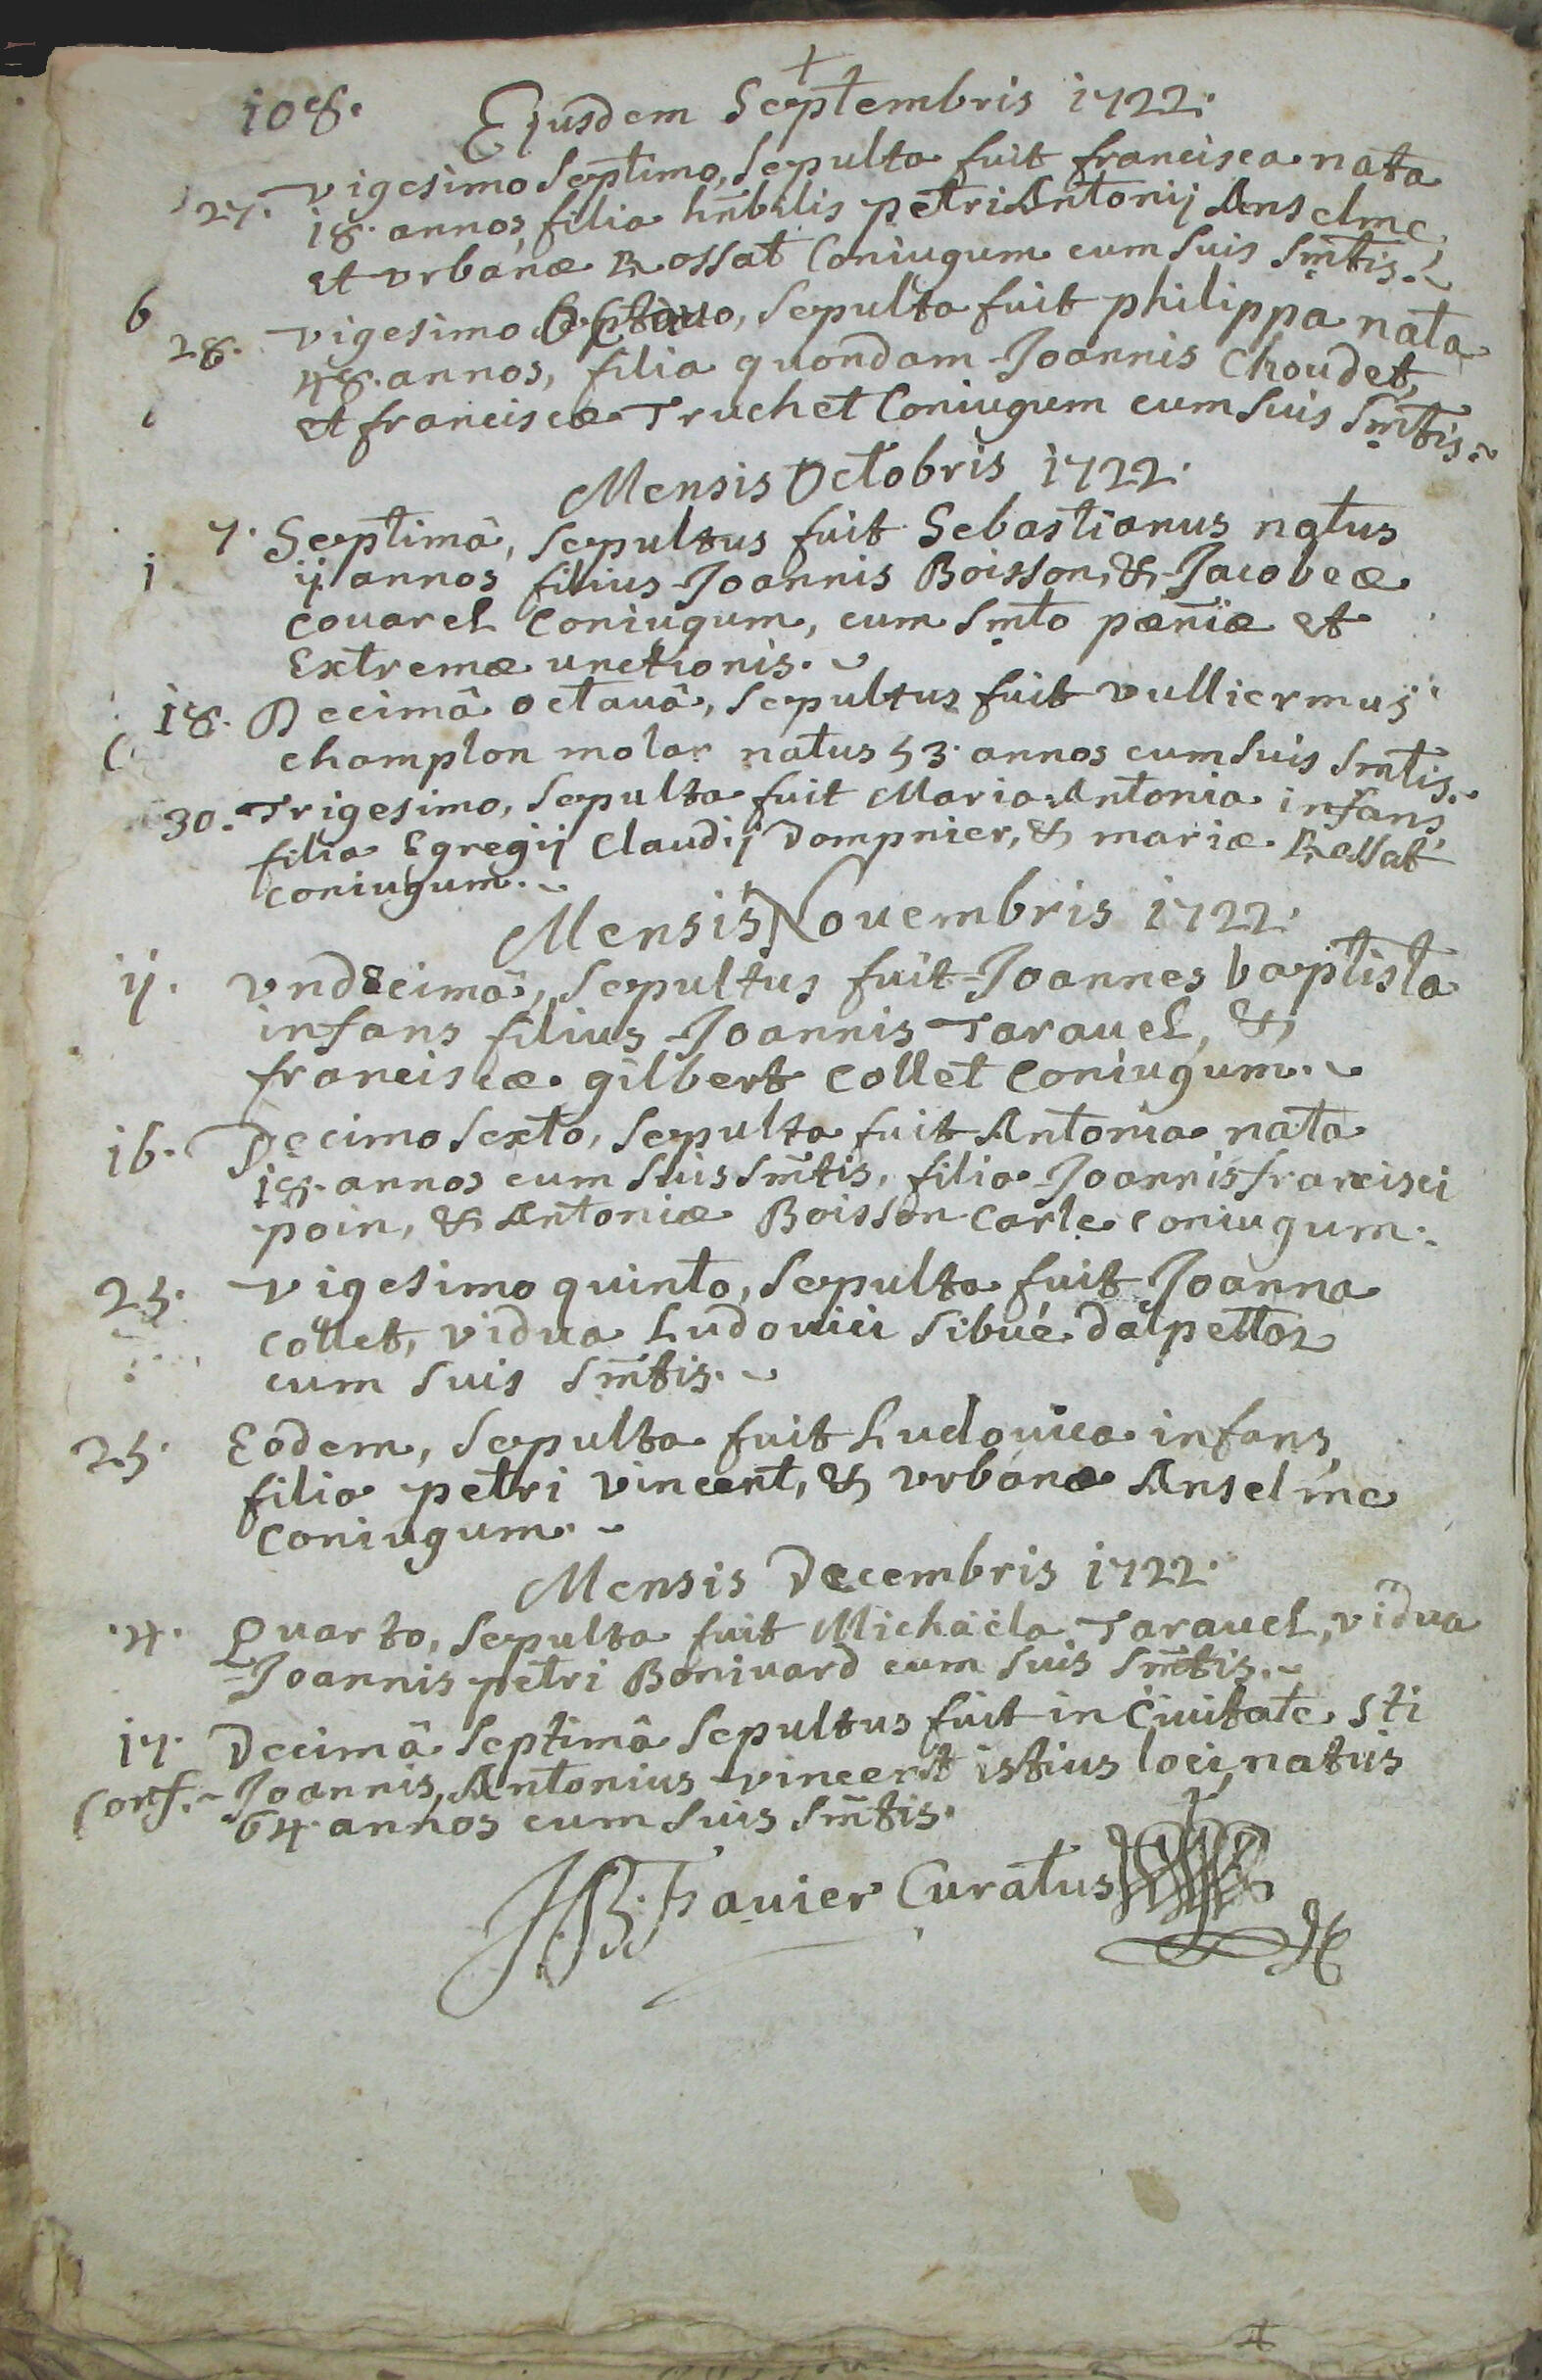 +
108. Ejusdem Septembris 1722.
27. vigesimo septimo, sepulta fuit francisca nata
18. annos, filia hnbilis petri Antonij Anselme
et vrbanæ Rossat Coniugum cum suis smtis.
6
28. vigesimo Octauo, sepulta fuit philippa nata
48. annos, filia quondam Joannis Choudet,
et franciscæ Truchet Coniugum cum suis smtis.
Mensis Octobris 1722.
7. Septimâ, sepultus fuit Sebastianus natus
ij annos filius Joannis Boisson, & Jacobeæ
couarel Coniugum, cum smto pæniæ et
Extremæ unctionis.
18. Decimâ octauâ, sepultus fuit vulliermus
champlon molar natus 53. annos cum suis smtis.
30. Trigesimo, sepulta fuit Maria Antonia infans
filia Egregij Claudij Dompnier, & mariæ Rossat
coniugum.
Mensis Nouembris 1722.
ij. vndecimâ, sepultus fuit Joannes baptista
infans filius Joannis Tarauel, &
franciscæ gilbert collet Coniugum.
16. Decimo sexto, sepulta fuit Antonia nata
18. annos cum suis smtis, filia Joannis francisci
poin, & Antoniæ Boisson carle coniugum.
25. vigesimo quinto, sepulta fuit Joanna
collet, vidua Ludouici sibué dalpettaz
cum suis smtis.
25. Eodem, sepulta fuit Ludouica infans,
filia petri vincent, & vrbanæ Anselme
Coniugum.
Mensis Decembris 1722.
4. Quarto, sepulta fuit Michaela Tarauel, vidua
Joannis petri Boniuard cum suis smtis.
17. Decimâ septimâ sepultus fuit in Ciuitate sti
Conf. Joannis, Antonius vincent istius loci natus
64 annos cum suis smtis.
Curatus